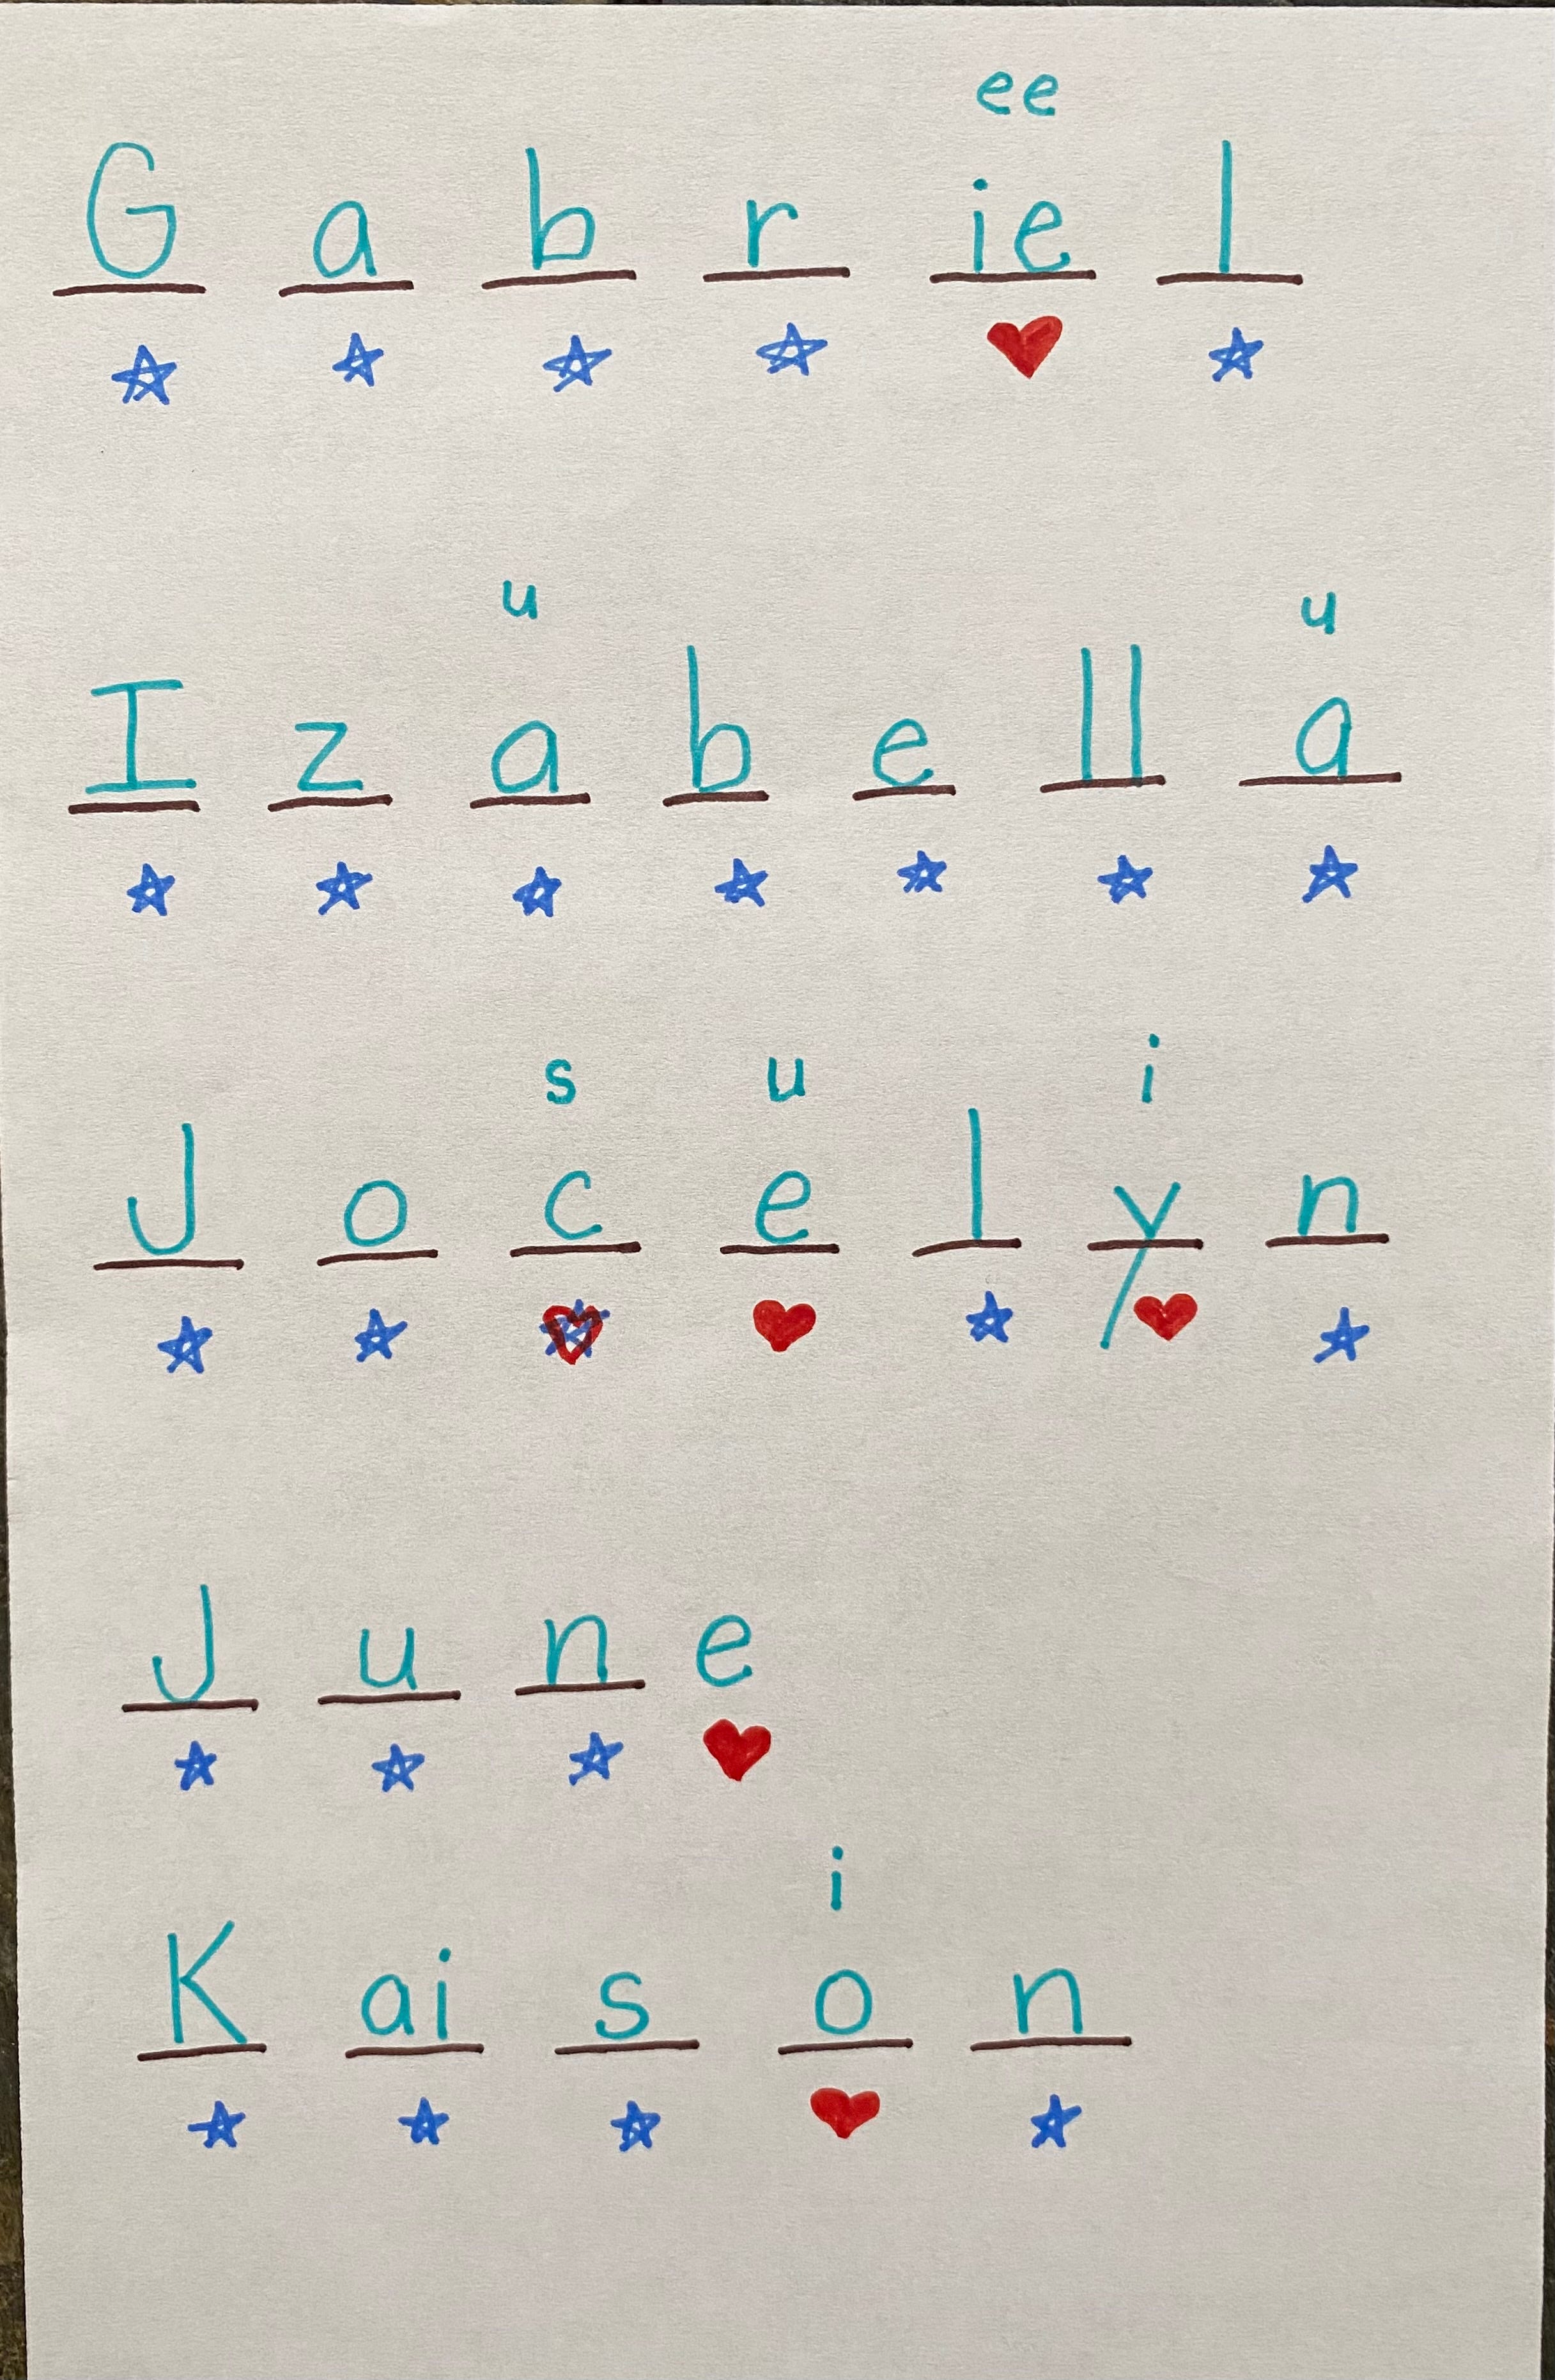 ee
G a b r ie l
u u
I z a b e ll a
s u i
J o c e l y n
J u n e
i
K ai s o n